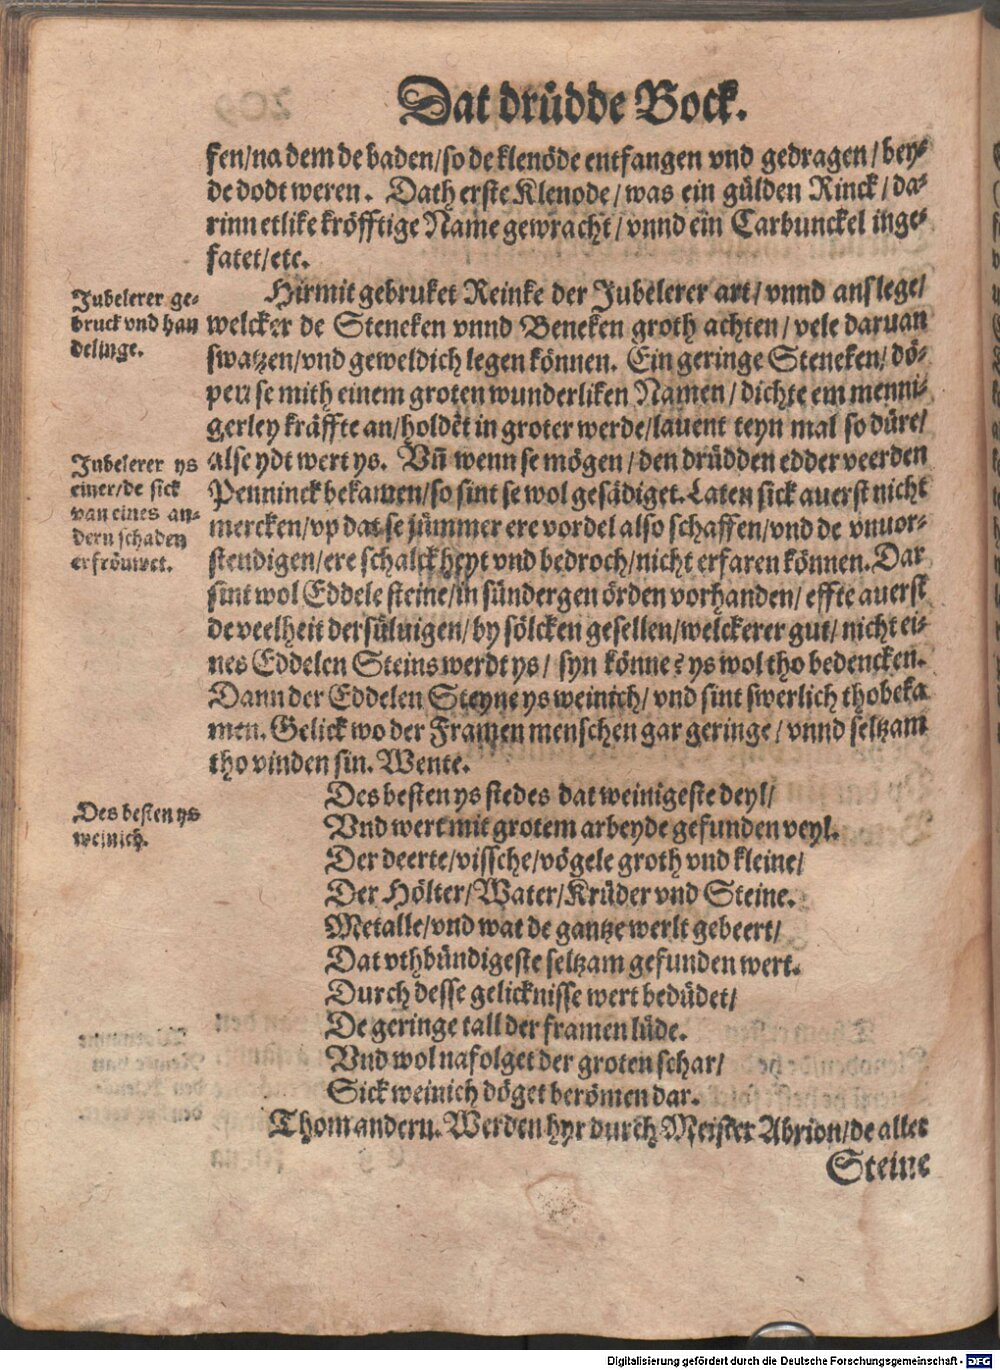 Dat drüdde Bock.
sen/na dem de baden/so de klenöde entfangen vnd gedragen/bey-
de dodt weren. Dath erste Klenode/was ein gülden Rinck/da-
rinn etlike kröfftige Name gewracht/vnnd ein Carbunckel inge-
satet/etc.
Jubelerer ge-
bruck vnd han
delinge.
Hirmit gebruket Reinke der Jubelerer art/vnnd anslege/
welcker de Steneken vnnd Beneken groth achten/vele daruan
swatzen/vnd geweldich legen können. Ein geringe Steneken/dö-
pen se mith einem groten wunderliken Namen/dichte em menni-
gerley kräffte an/holdēt in groter werde/lauent teyn mal so düre/
alse ydt wert ys. Vñ wenn se mögen/den drüdden edder veerden
Jubelerer ys
einer/de sick
van eines an-
dern schaden
erfröuwet.
Penninck bekamen/so sint se wol gesädiget. Laten sick auerst nicht
mercken/vp dat se jümmer ere vordel also schaffen/vnd de vnuor-
stendigen/ere schalckheyt vnd bedroch/nicht erfaren können. Dar
sint wol Eddele steine/in sündergen örden vorhanden/effte auerst
de veelheit der süluigen/by sölcken gesellen/welckerer gut/nicht ei-
nes Eddelen Steins werdt ys/syn könne? ys wol tho bedencken.
Dann der Eddelen Steyne ys weinich/vnd sint swerlich tho beka
men. Gelick wo der Framen menschen gar geringe/vnnd seltzam
tho vinden sin. Wente.
Des besten ys
weinich.
Des besten ys stedes dat weinigeste deyl/
Vnd wert mit grotem arbeyde gefunden veyl.
Der deerte/vissche/vögele groth vnd kleine/
Der Hölter/Water/Krüder vnd Steine.
Metalle/vnd wat de gantze werlt gebeert/
Dat vthbündigeste seltzam gefunden wert.
Durch desse gelicknisse wert bedüdet/
De geringe tall der framen lüde.
Vnd wol nafolget der groten schar/
Sick weinich döget berömen dar.
Thom andern. Werden hyr durch Meister Abrion/de aller
Steine
Digitalisierung gefördert durch die Deutsche Forschungsgemeinschaft - DFG